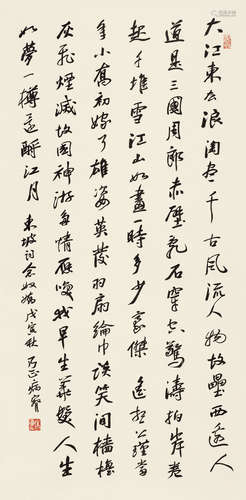 大江东去浪淘尽千古风流人物故垒西边人
道是三國周郎赤壁乱石穿空驚濤拍岸卷
起千堆雪江山如畫一時多少豪傑遙想公瑾當
年小喬初嫁了雄姿英發羽扇綸巾談笑間檣櫓
灰飛煙滅故國神游多情應笑我早生華髮人生
如夢一樽還酹江月 東坡词念奴嬌戊寅秋